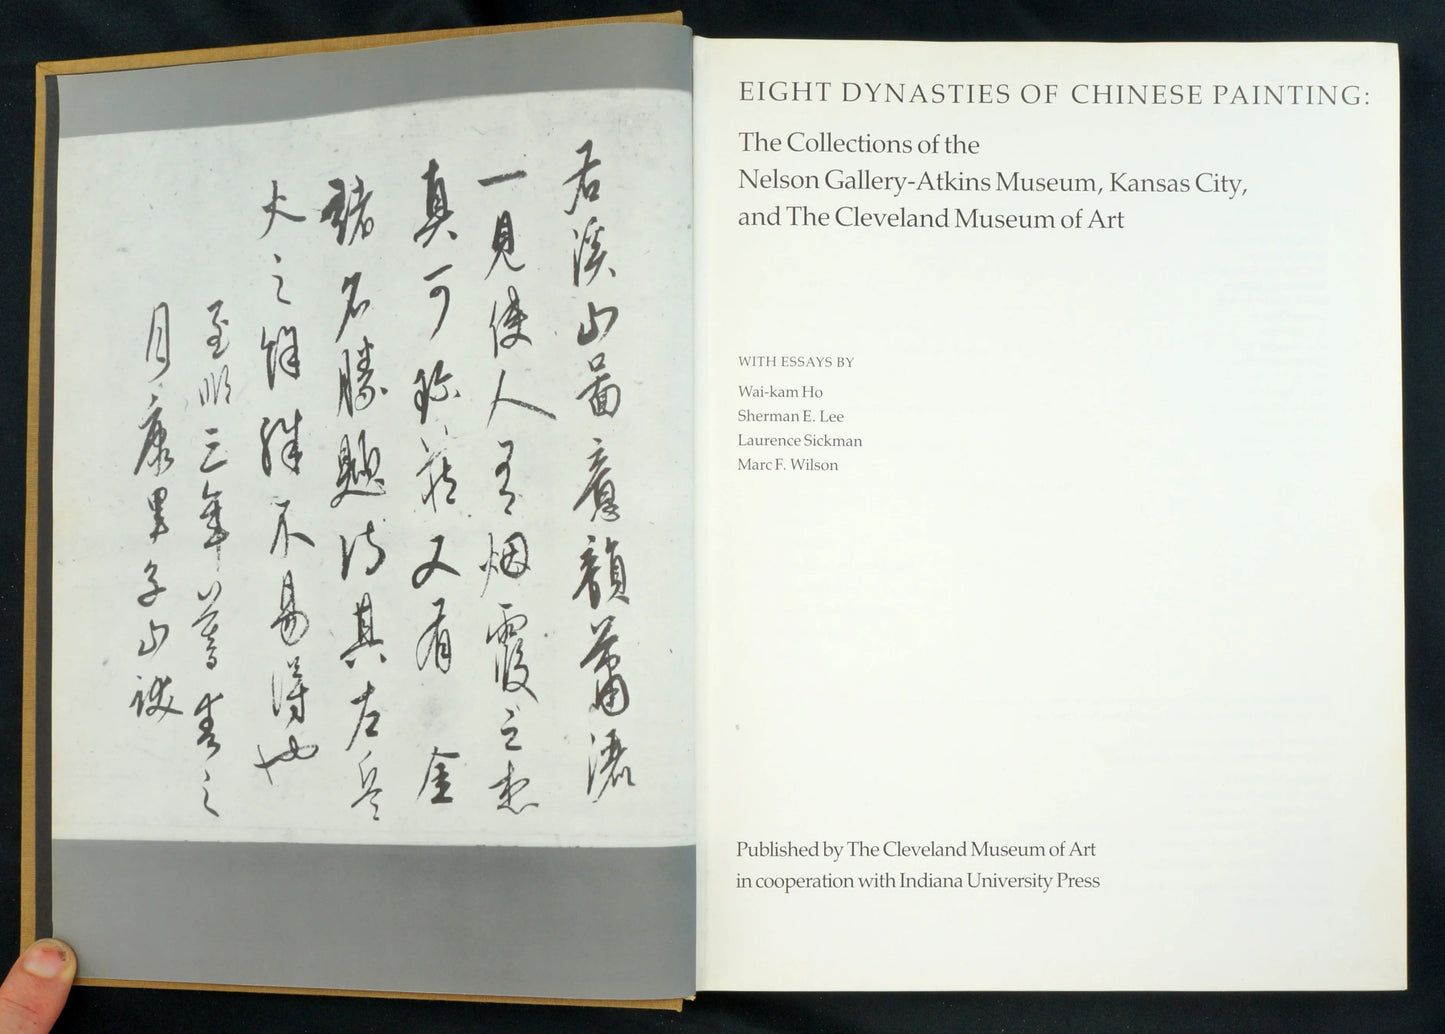 右溪山圖意韻蕭灑
一見使人有烟霞之想
真可珍藏又有金
諸名勝題詩其在兵
火之餘殊不易得也
至順三年暮春之
月康里子山跋
EIGHT DYNASTIES OF CHINESE PAINTING:
The Collections of the
Nelson Gallery-Atkins Museum, Kansas City,
and The Cleveland Museum of Art
WITH ESSAYS BY
Wai-kam Ho
Sherman E. Lee
Laurence Sickman
Marc F. Wilson
Published by The Cleveland Museum of Art
in cooperation with Indiana University Press